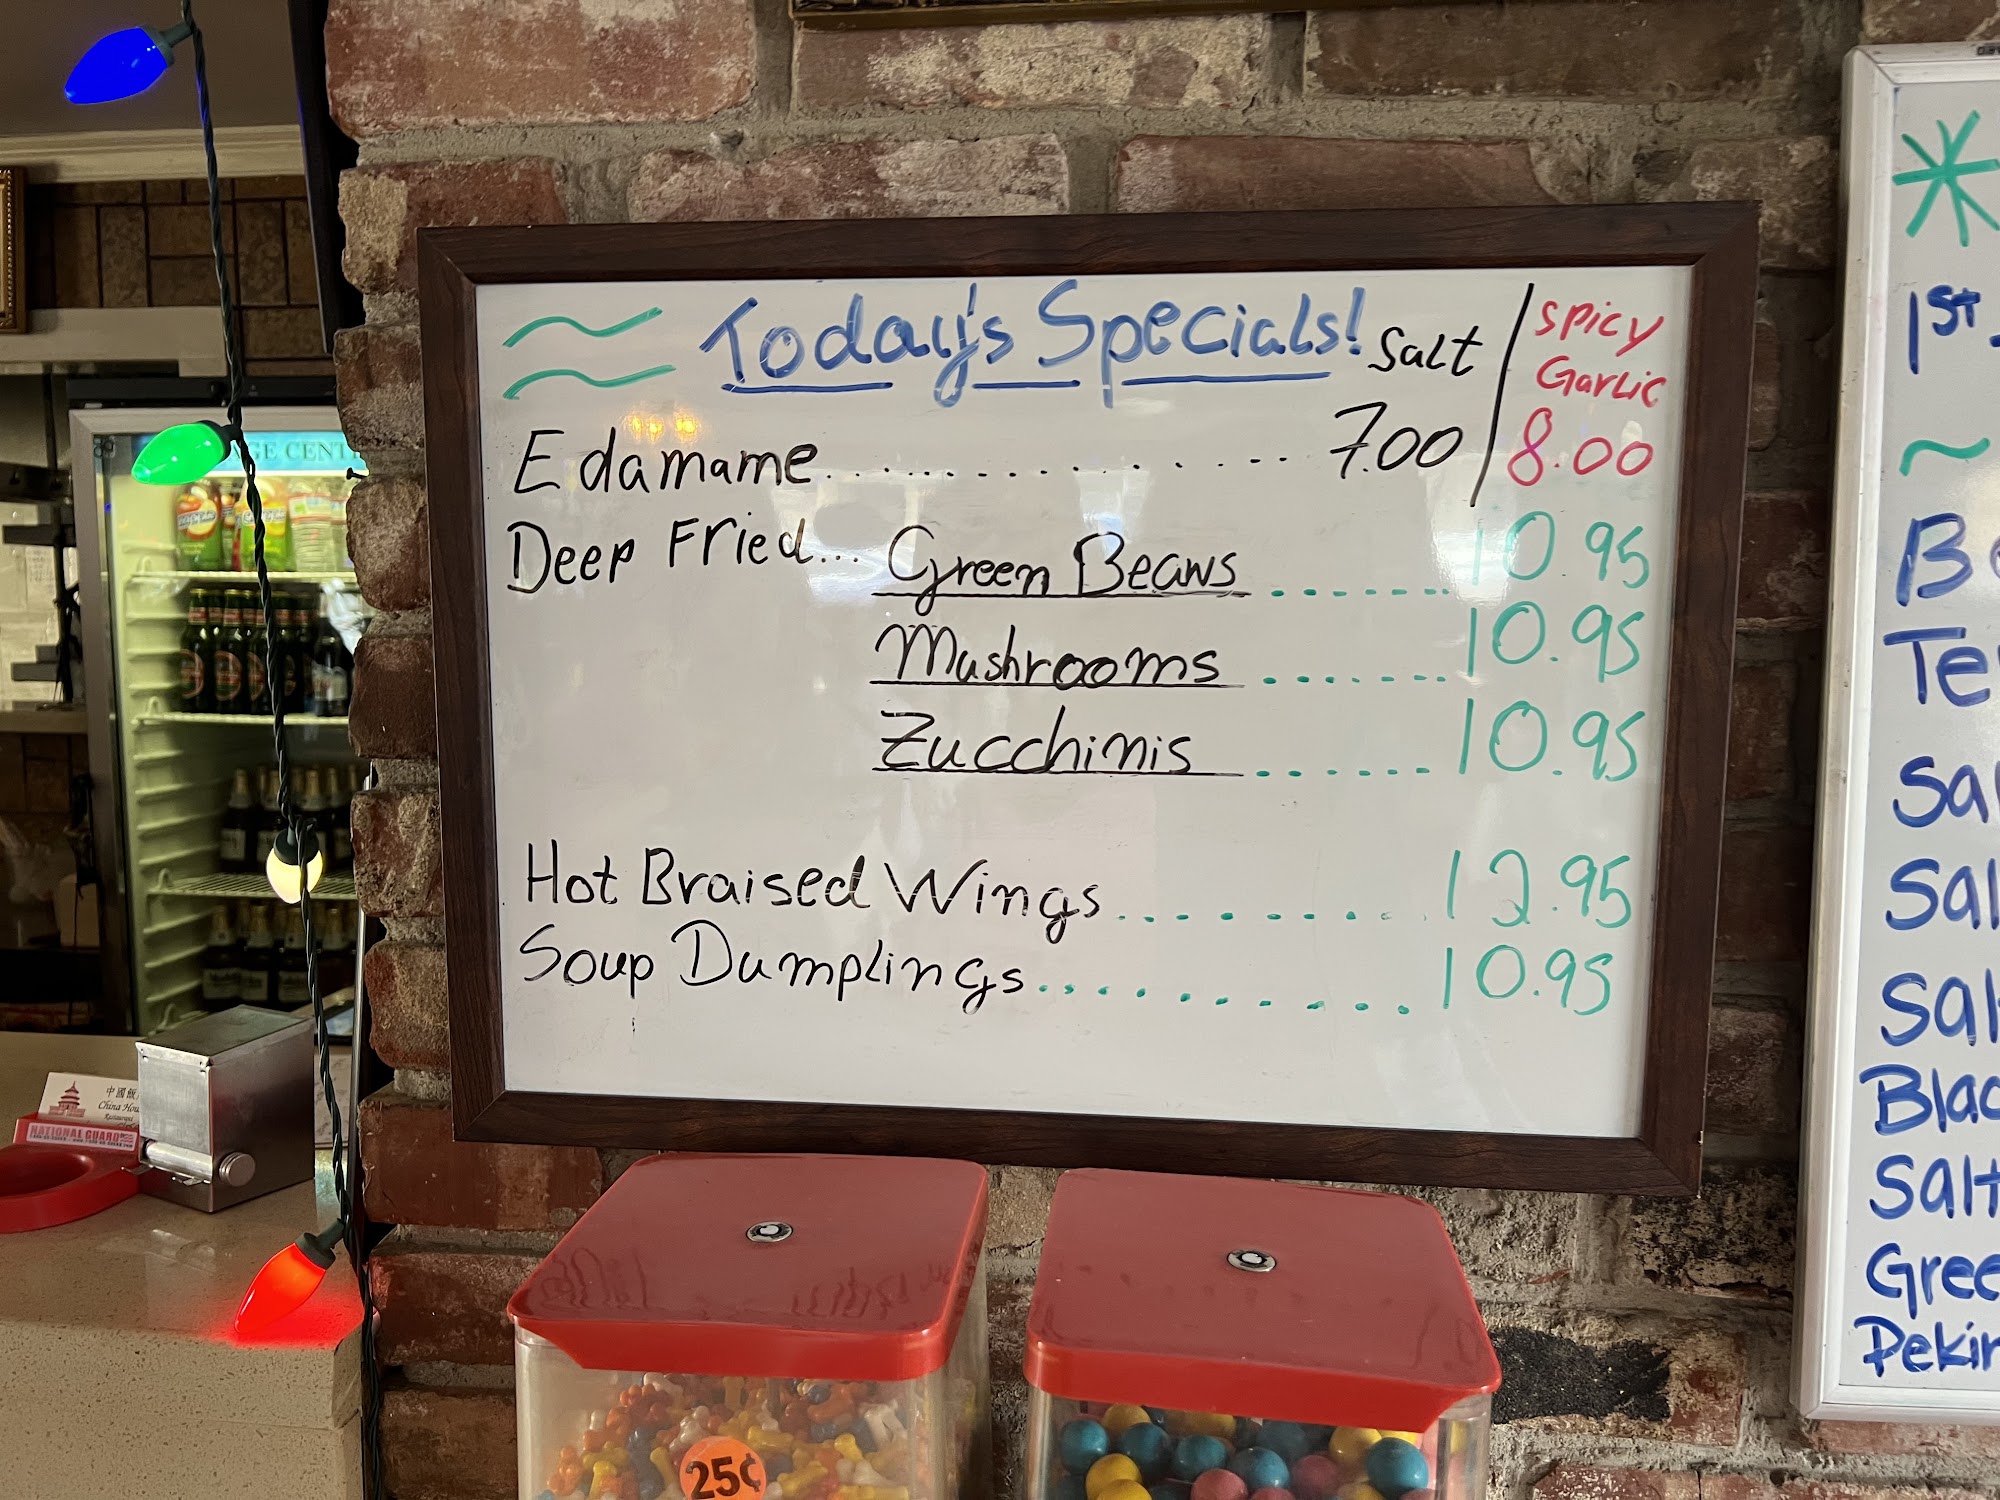 Today's Specials! Salt / Spicy Garlic
Edamame............. 7.00 / 8.00
Deep Fried... Green Beans ....... 10.95
Mushrooms ....... 10.95
Zucchinis ....... 10.95
Hot Braised Wings......... 12.95
Soup Dumplings........... 10.95
中國飯
China Hou
Restaurant
NATIONAL GUARD
25¢
1st
Be
Te
Sal
Sal
Sal
Blac
Salt
Gree
Pekin